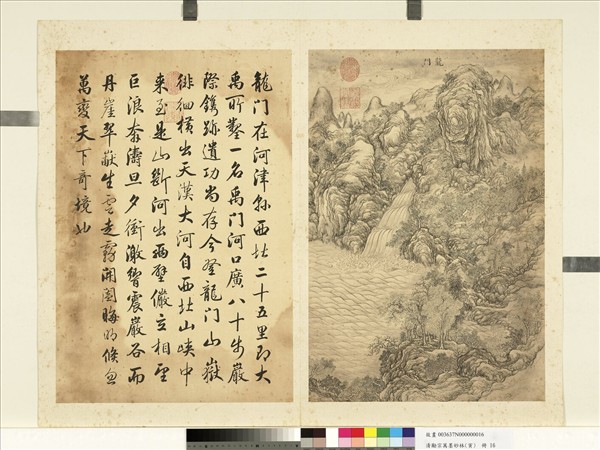 龍門在河津縣西北二十五里即大
禹所鑿一名禹門河口廣八十步巖
際鐫跡遺功尚存今登龍門山嶽
徘徊橫出天漢大河自西北山峽中
來至是山斷河出兩壁儼立相望
巨浪奔濤旦夕衝激響震巖谷而
丹崖翠巘生雲走霧開闔晦明倏忽
萬變天下奇境也
龍門
故畫 003637N000000016